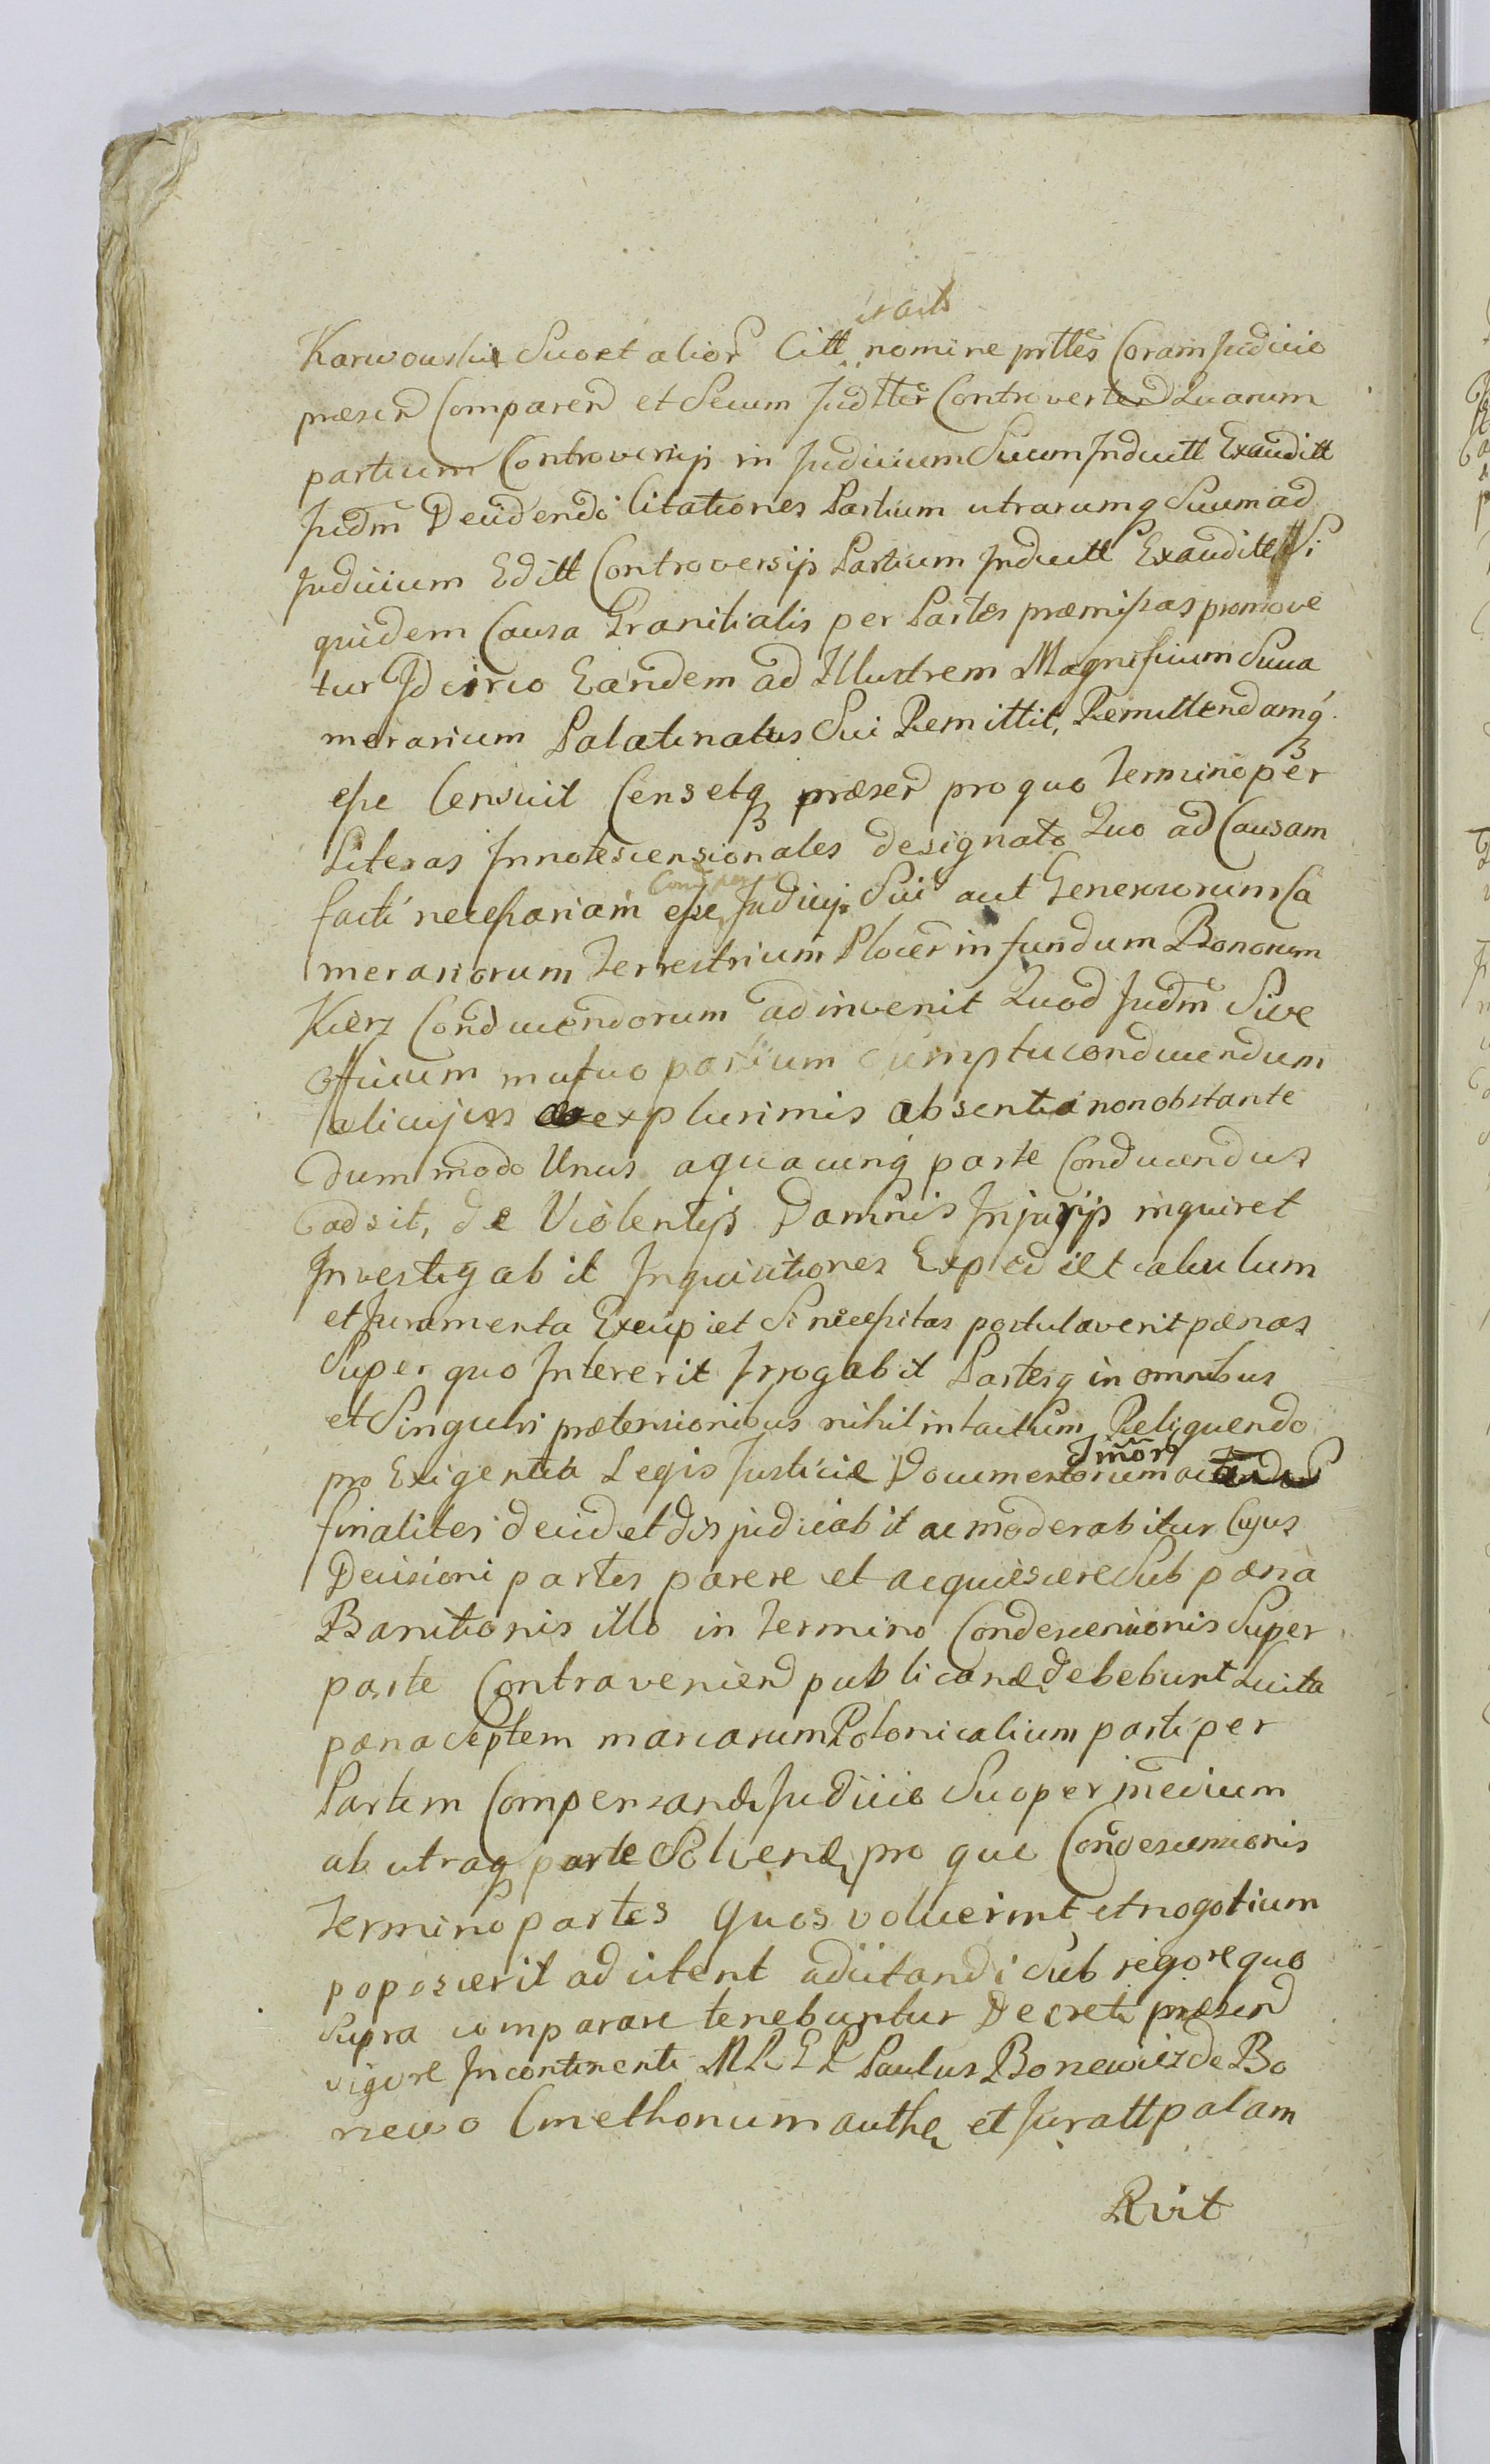 et acto
Karwouskie Suo et alior Citt nomine prttes Coram Judicio
præsen Comparen et Secum Judtter Controverten Quarum
partium Controversijs in Judicium Suum Inductt Exauditt
Judm Decidendo Citationes Partium utrarumq Suum ad
Judicium Editt Controversijs Partium Inductt Exauditt Si
quidem Causa Granitialis per Partes præmissas promove
tur Idcirco Eandem ad Illustrem Magnificum Succa
merarium Palatinatus Sui Remittit, Remittendamq
esse Censuit Censetq præsen pro quo Termino per
Literas Innotescensionales designato Quo ad Causam
facti necessariam esse Judicij Sui aut Generosorum Ca
merariorum Terrestrium Plocen in fundum Bonorum
Kierz Conducendorum adinvenit Quod Judm Sive
Officium mutuo partium sumptu conducendum
alicujus ex plurimis absentia non obstante
dummodo Unus aquacunq parte Conducendus
adsit, de Violentijs Damnis Injurijs inquiret
Investigabit Inquisitiones Expediet calculum
et Juramenta Excipiet Si necessitas postulaverit pænas
Super quo Intererit Irrogabit Partesq in omnibus
et Singulis prætensionibus nihil intactum Reliquendo
pro Exigentia Legis Justiciæ Documentorum ac
finaliter decidet disjudicabit ac moderabitur Cujus
Decisioni partes parere et acquiescere Sub pæna
Banitionis illo in Termino Condescensionis Super
parte Contravenien publicand debebunt Luita
pæna Septem marcarum Polonicalium parti per
Partem Compensand Judicio Suo per medium
ab utraq parte Solvend pro quo Condescensionis
Termino partes quos voluerint et negotium
poposcerit adcitent adcitandi sub rigore quo
Supra comparare tenebuntur Decreti præsen
vigore Incontinenti M R E P Paulus Boncwicz de Bo
newo Cmethonum auth et Juratt palam
Rvit